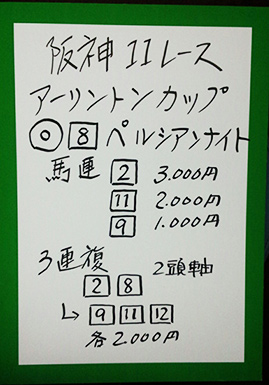 阪神11レース
アーリントンカップ
◎ 8 ペルシアンナイト
馬連 2 3.000円
11 2.000円
9 1.000円
3連複 2頭軸
2 8
↳ 9 11 12
各2000円